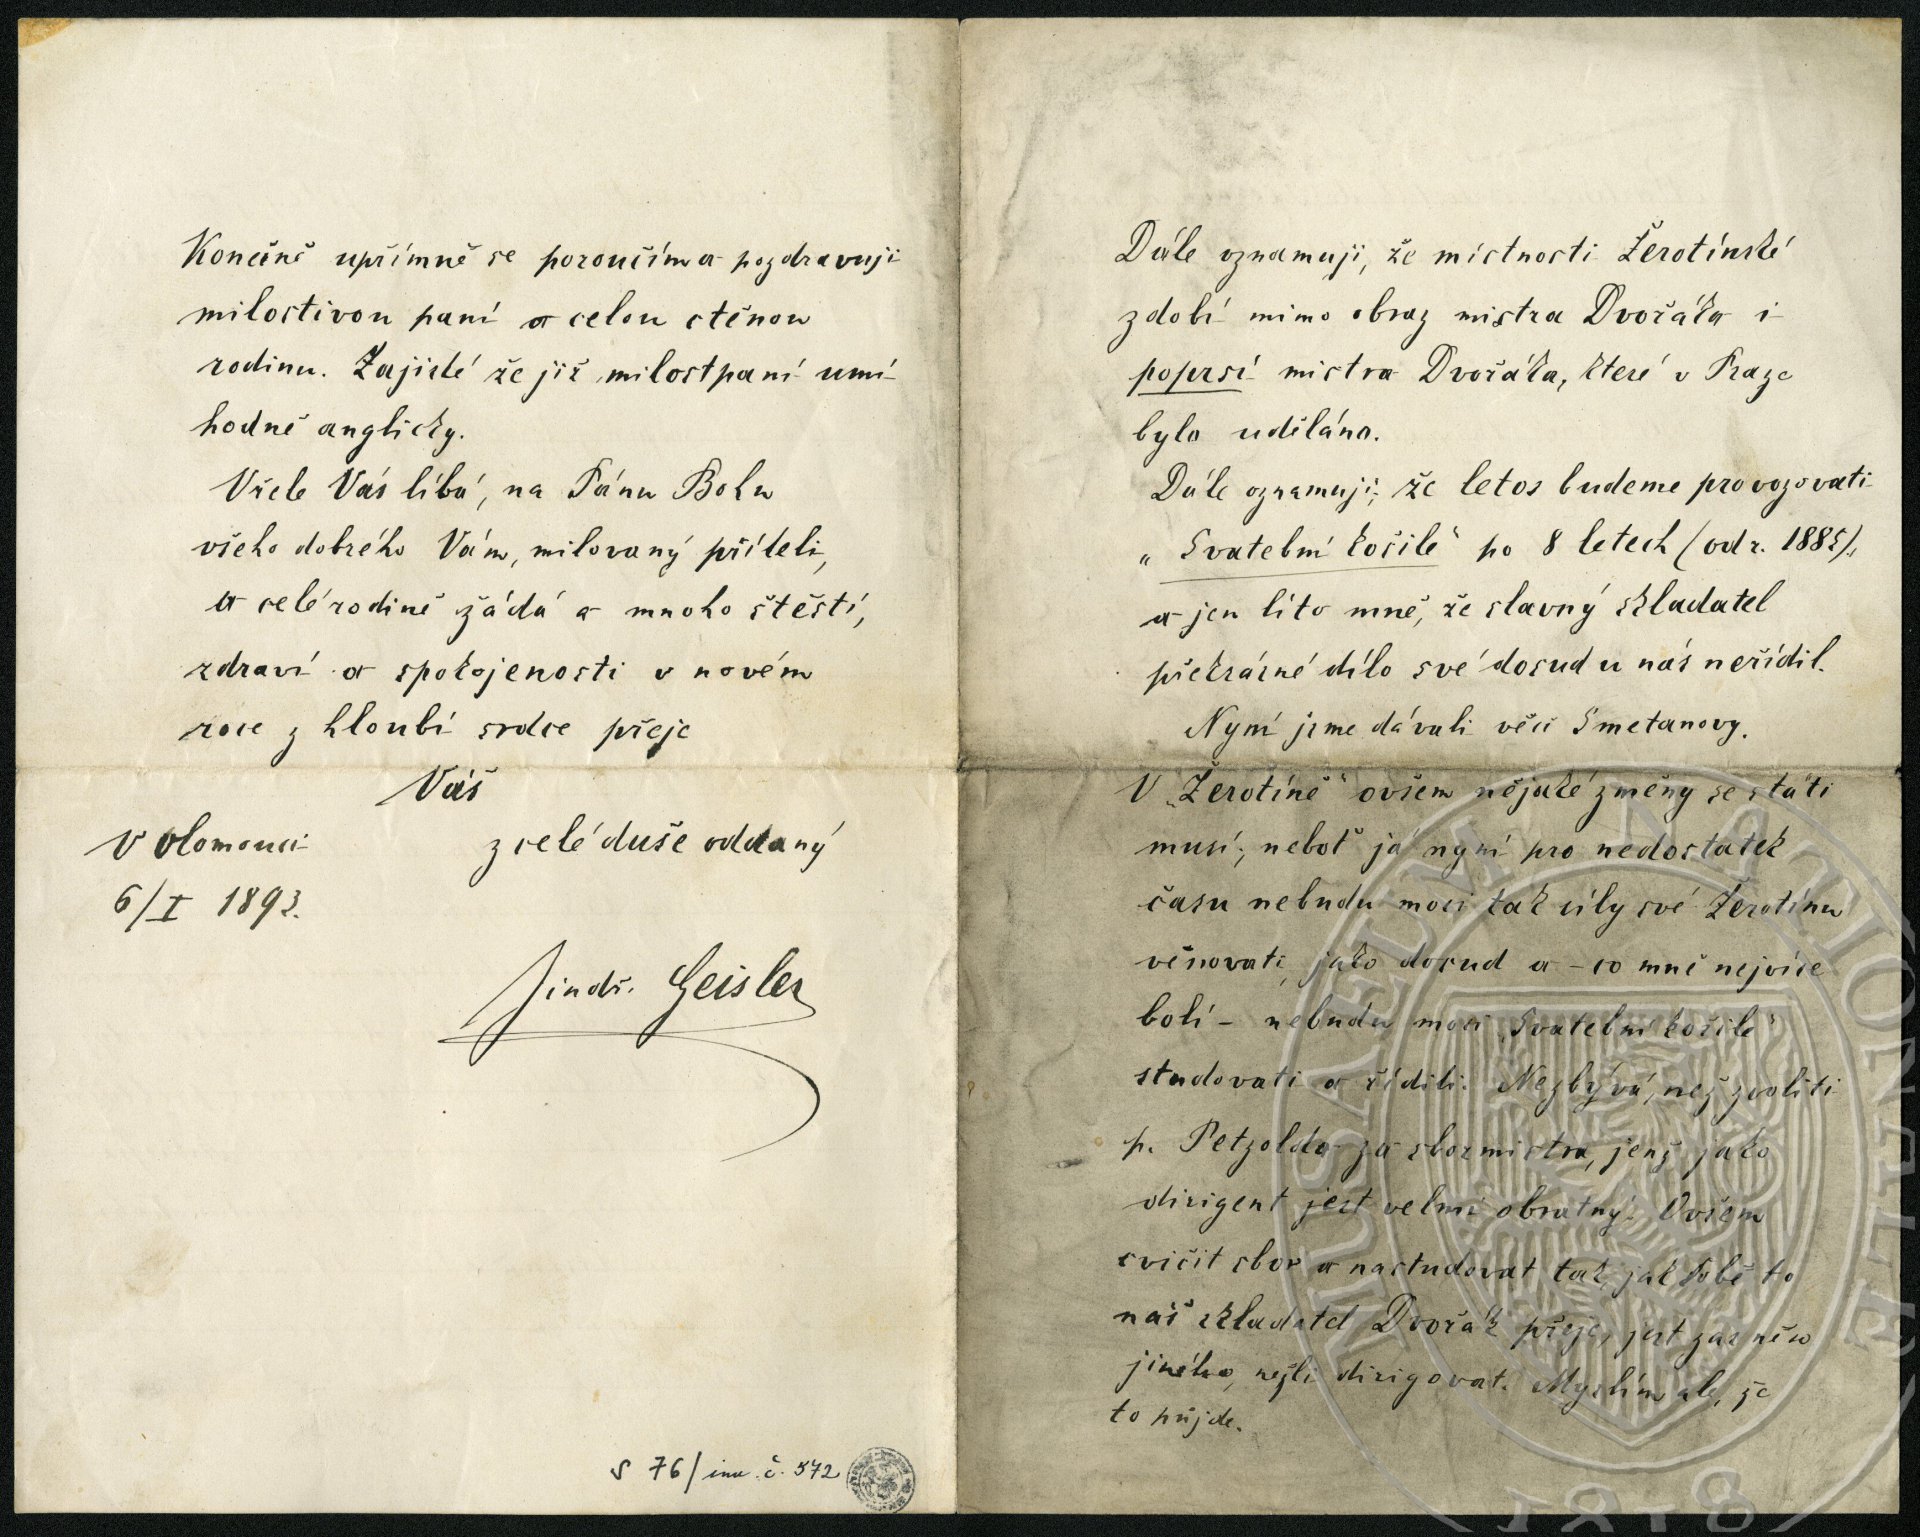 Konečně upřímně se poroučím a pozdravuji
milostivou paní a celou ctěnou
rodinu. Zajisté že již milostpaní umí
hodně anglicky.
Vřele Vás líbá, na Pánu Bohu
všeho dobrého Vám, milovaný příteli,
a celé rodině žádá a mnoho štěstí,
zdraví a spokojenosti v novém
roce z hloubi srdce přeje
Váš
z celé duše oddaný
V Olomouci
6/I 1893.
Jindř. Geisler
S 76/ inv. č. 572
Dále oznamuji, že místnosti Žerotínské
zdobí mimo obraz mistra Dvořáka i
poprsí mistra Dvořáka, které v Praze
bylo uděláno.
Dále oznamuji, že letos budeme provozovati
„Svatební košile" po 8 letech (od r. 1885),
a jen líto mně, že slavný skladatel
překrásné dílo své dosud u nás neřídil.
Nyní jsme dávali věci Smetanovy.
V „Žerotíně" ovšem nějaké změny se státi
musí; neboť já nyní pro nedostatek
času nebudu moci tak síly své Žerotínu
věnovati, jako dosud a – co mně nejvíce
bolí – nebudu moci „Svatební košile"
studovati a říditi. Nezbývá, než zvoliti
p. Petzolda za sbormistra, jenž jako
dirigent jest velmi obratný. Ovšem
cvičit sbor a nastudovat tak, jak sobě to
náš skladatel Dvořák přeje, jest zas něco
jiného, nežli dirigovat. Myslím ale, že
to půjde.
MUSAEUM NATIONALE
1818